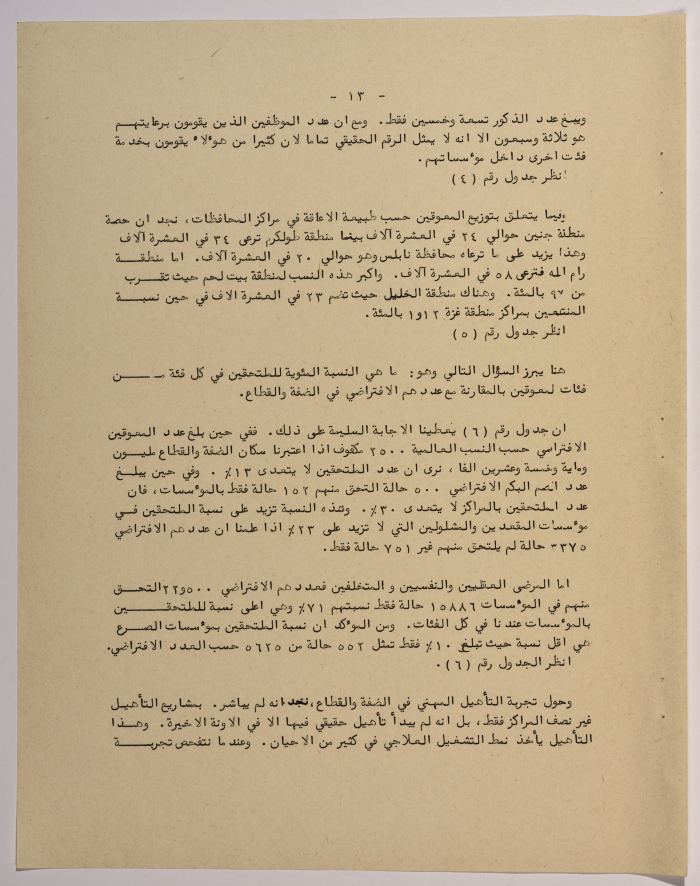 - ١٣ -
ويبلغ عدد الذكور تسعة وخمسين فقط. ومع ان عدد الموظفين الذين يقومون برعايتهم
هو ثلاثة وسبعون الا انه لا يمثل الرقم الحقيقي تماما لان كثيرا من هؤلاء يقومون بخدمة
فئات اخرى داخل مؤسساتهم.
انظر جدول رقم (٤)
وفيما يتعلق بتوزيع المعوقين حسب طبيعة الاعاقة في مراكز المحافظات، نجد ان حصة
منطقة جنين حوالي ٢٤ في العشرة آلاف بينما منطقة طولكرم ترعى ٣٤ في العشرة آلاف
وهذا يزيد على ما ترعاه محافظة نابلس وهو حوالي ٢٠ في العشرة آلاف. اما منطقة
رام الله فترعى ٥٨ في العشرة آلاف. واكبر هذه النسب لمنطقة بيت لحم حيث تقترب
من ٩٧ بالمئة. وهناك منطقة الخليل حيث تضم ٢٣ في العشرة الاف في حين نسبة
المنتفعين بمراكز منطقة غزة ١٢و١ بالمئة.
انظر جدول رقم (٥)
هنا يبرز السؤال التالي وهو: ما هي النسبة المئوية للملتحقين في كل فئة مــن
فئات لمعوقين بالمقارنة مع عددهم الافتراضي في الضفة والقطاع.
ان جدول رقم (٦) يعطينا الاجابة السليمة على ذلك. ففي حين بلغ عدد المعوقين
الافتراسي حسب النسب العالمية ٢٥٠٠ مكفوف اذا اعتبرنا سكان الضفة والقطاع مليون
وماية وخمسة وعشرين الفا، نرى ان عدد الملتحقين لا يتعدى ١٣٪. وفي حين يبلغ
عدد الصم البكم الافتراضي ٥٠٠ حالة التحق منهم ١٥٢ حالة فقط بالمؤسسات، فان
عدد الملتحقين بالمراكز لا يتعدى ٣٠٪. وهذه النسبة تزيد على نسبة الملتحقين في
مؤسسات المقعدين والمشلولين التي لا تزيد على ٢٣٪ اذا علمنا ان عددهم الافتراضي
٣٣٧٥ حالة لم يلتحق منهم غير ٧٥١ حالة فقط.
اما المرضى العقليين والنفسيين و المتخلفين فعددهم الافتراضي ٥٠٠و٢٢ التحق
منهم في المؤسسات ١٥٨٨٦ حالة فقط نسبتهم ٧١٪ وهي اعلى نسبة للملتحقين
بالمؤسسات عندنا في كل الفئات. ومن المؤكد ان نسبة الملتحقين بمؤسسات الصرع
هي اقل نسبة حيث تبلغ ١٠٪ فقط تمثل ٥٥٢ حالة من ٥٦٢٥ حسب العدد الافتراضي.
انظر الجدول رقم (٦).
وحول تجربة التأهيل المهني في الضفة والقطاع، نجد انه لم يباشر. بمشاريع التأهيل
غير نصف المراكز فقط، بل انه لم يبدأ تأهيل حقيقي فيها الا في الاونة الاخيرة. وهذا
التأهيل يأخذ نمط التشغيل العلاجي في كثير من الاحيان. وعندما نتفحص تجربة